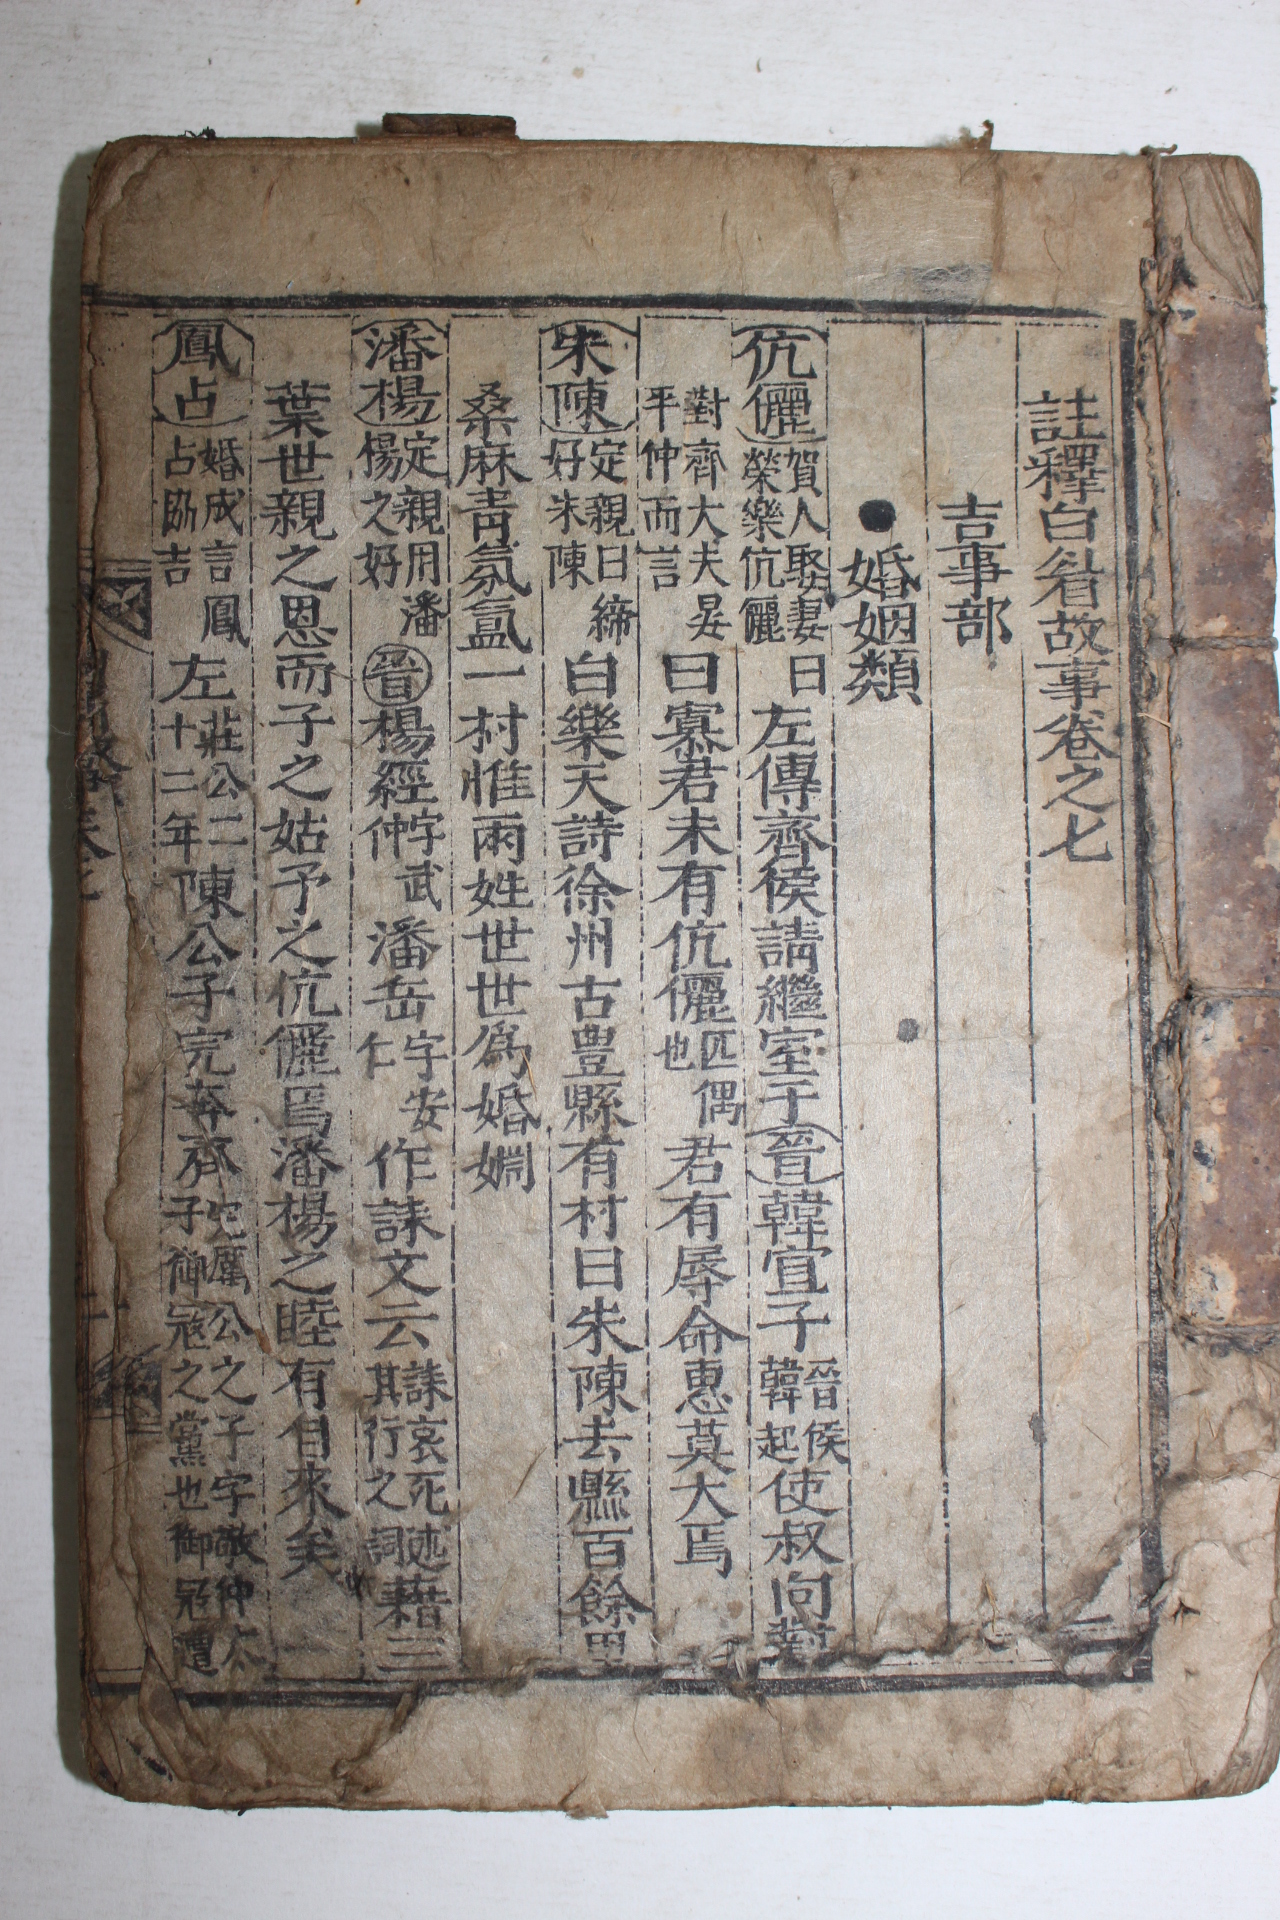 註釋白眉故事卷之七
吉事部
●婚姻類
伉儷賀人娶妻曰榮樂伉儷左傳齊侯請繼室于晉韓宣子晉侯韓起使叔向對
對齊大夫晏平仲而言曰寡君未有伉儷匹偶也君有辱命惠莫大焉
朱陳定親曰締好朱陳白樂天詩徐州古豊縣有村曰朱陳去縣百餘里
桑麻青氛氳一村惟兩姓世世爲婚婣
潘楊定親用潘楊之好晉楊經字武仲潘岳字安仁作誄文云誄哀死述其行之詞藉三
葉世親之恩而子之姑予之伉儷焉潘楊之睦有自來矣
鳳占婚成言鳳占協吉左莊公二十二年陳公子完奔齊完厲公之子字敬仲太子御冦之黨也御冦遭